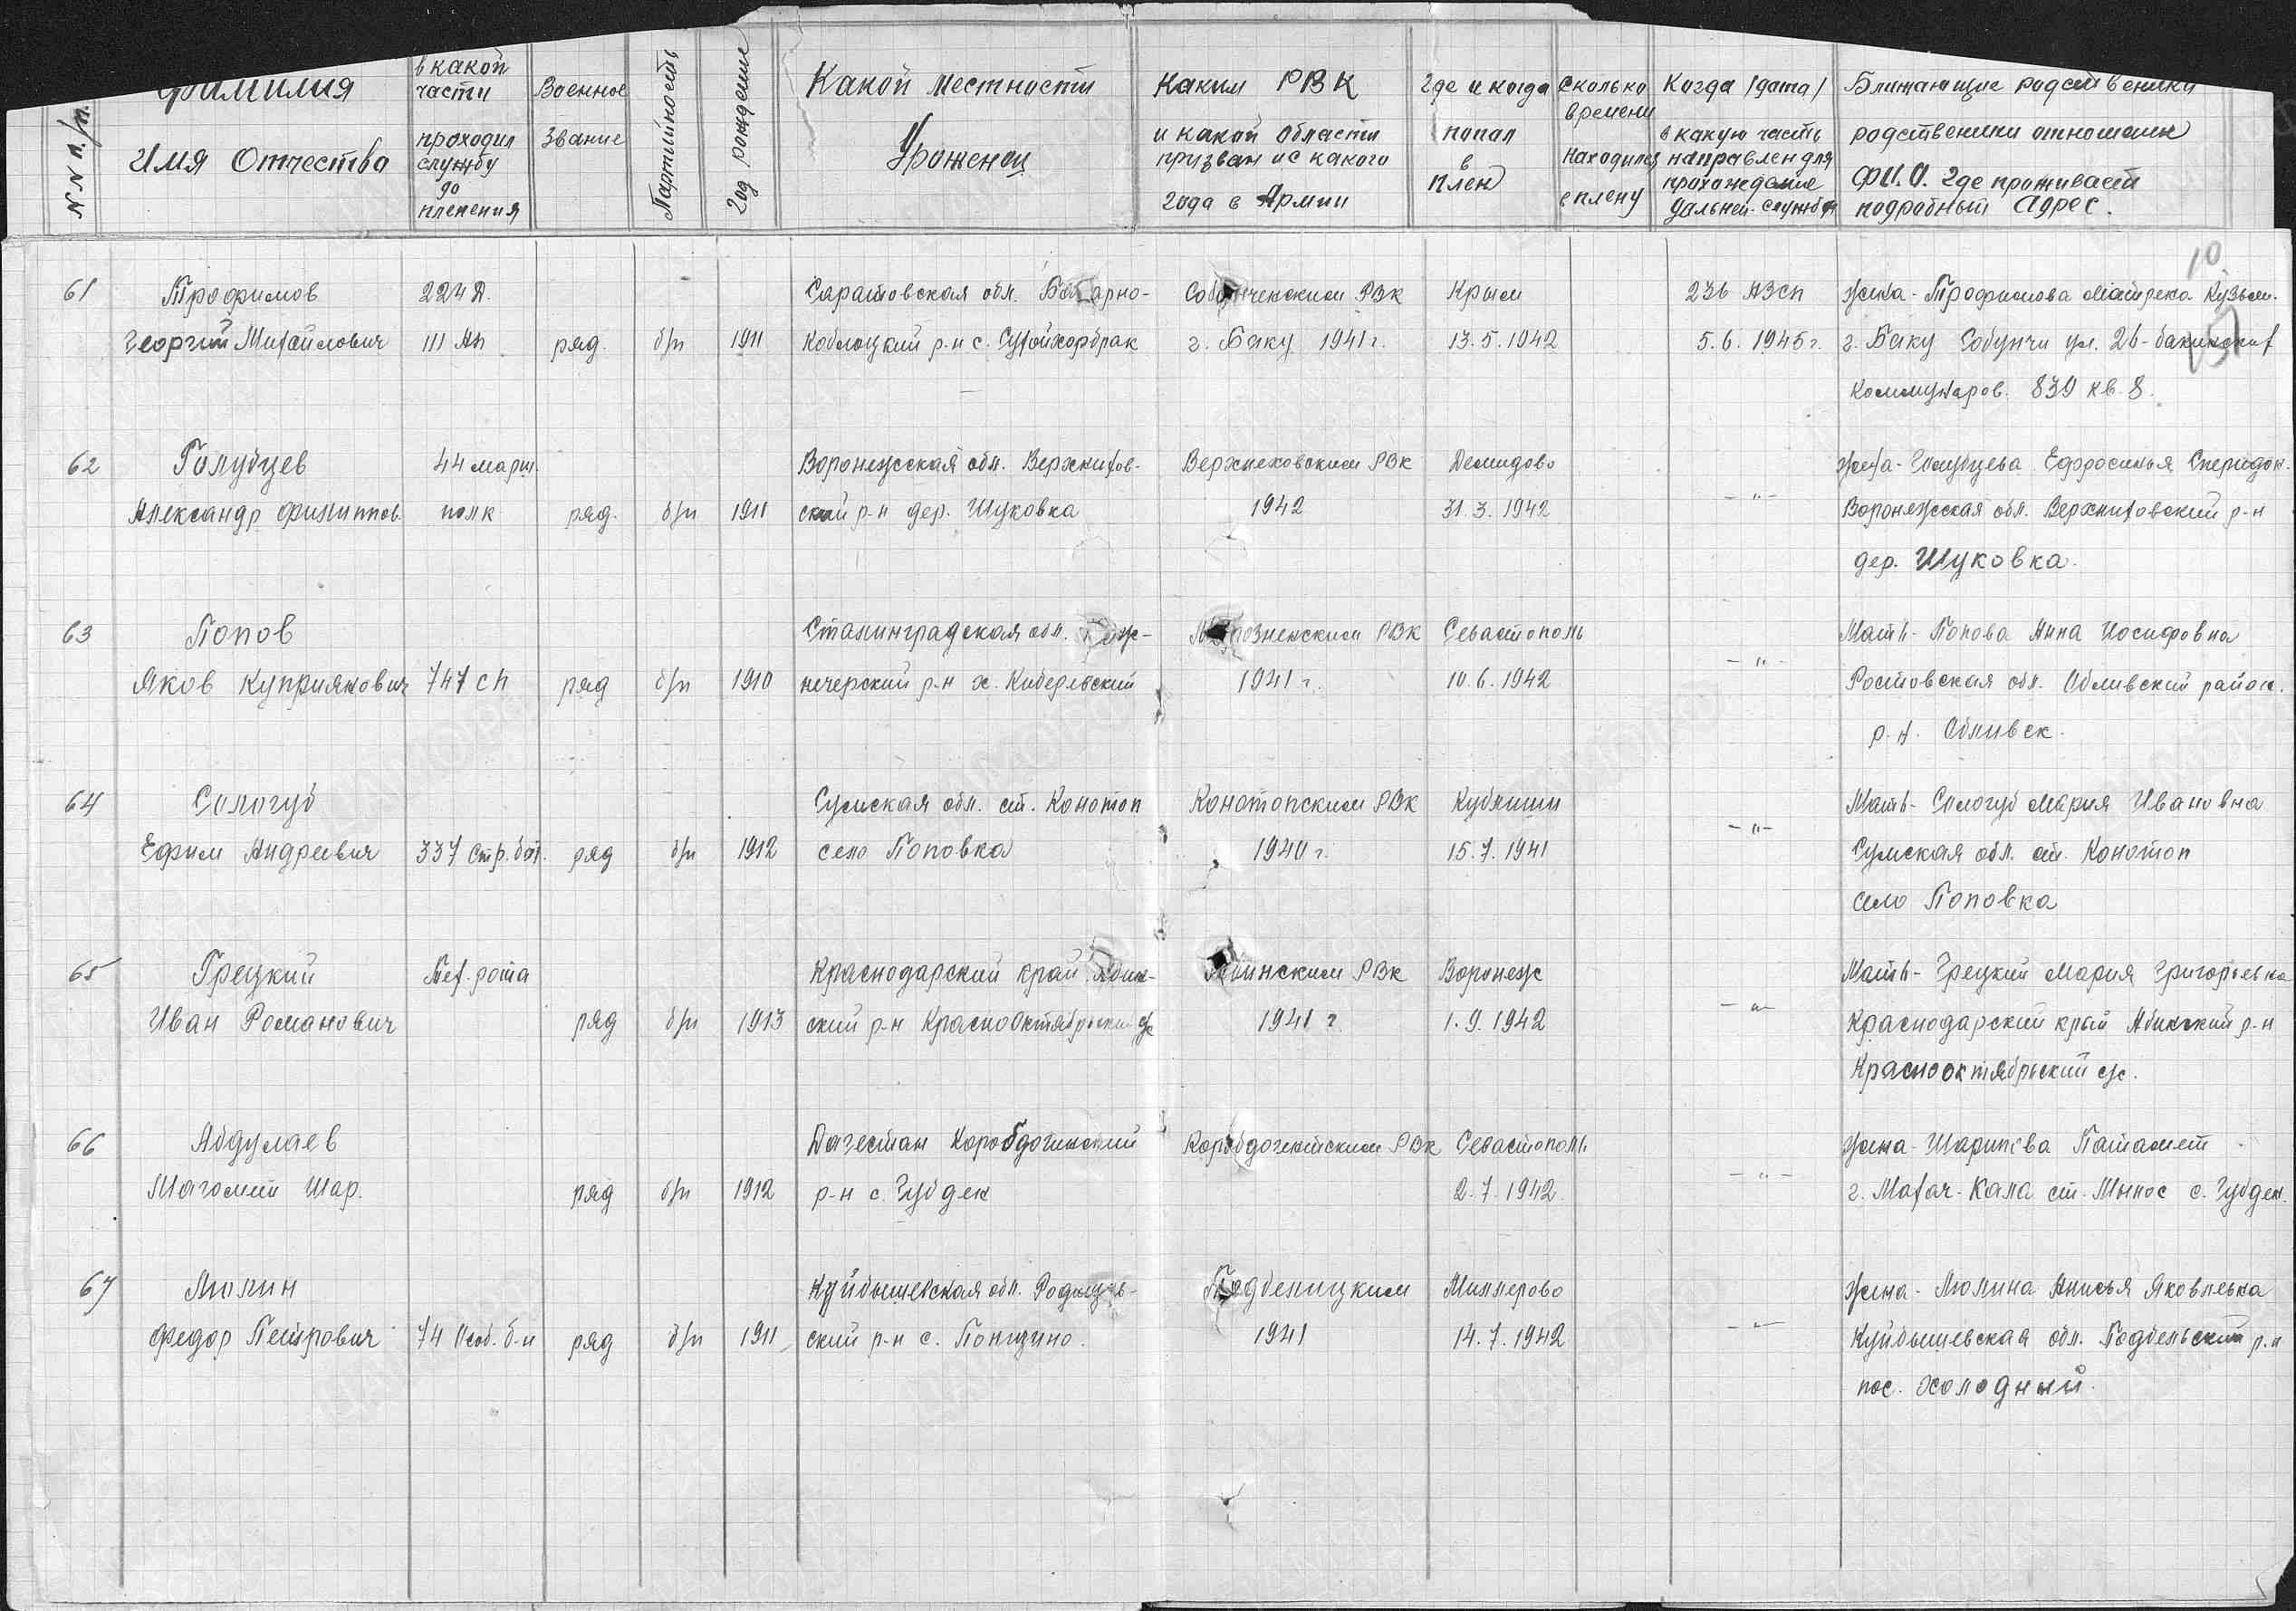 №№ п/п.
Фамилия
Имя Отчество
в какой
части
проходил
службу
до
пленения
Военное
Звание
Партийность
Год рождение
Какой местности
Уроженец
Каким РВК
и какой области
призван и с какого
года в Армии
Где и когда
попал
в
плен
Сколько
времени
находился
в плену
Когда /дата/
в какую часть
направлен для
прохождение
дальней. службы
Ближающие родственики
родственики отношение
Ф.И.О. где проживает
подробный адрес.
10
61 Трофимов 224 Д. Саратовская обл. РВК Крым 236 АЗСП жена - Трофимова Кузьм.
Георгий Михайлович 111 Ап ряд. б/п 1911 р-н с. г. Баку 1941 г. 13.5.1942 5.6.1945 г. г. Баку Собунчи ул. 26-бакинских
коммунаров. 839 кв. 8.
62 Голубцев 44 марш. Воронежская обл. Верхнихов- Верхнеховским РВК Демидово жена - Голубцева Ефросинья Спиридон.
Александр Филиппов. полк ряд. б/п 1911 ский р-н дер. Шуковка 1942 31.3.1942 -"- Воронежская обл. Верхниховский р-н
дер. Шуковка.
63 Попов Сталинградская обл. РВК Севастополь Мать - Попова Анна Иосифовна
Яков Куприянович 747 сп ряд б/п 1910 нечерский р-н х. Киберевский 1941 г. 10.6.1942 -"- Ростовская обл. Обливский район.
р.н. Обливск.
64 Сологуб Сумская обл. ст. Конотоп Конотопским РВК Кублищи Мать - Сологуб Мария Ивановна
Ефим Андреевич 337 стр. бат. ряд б/п 1912 село Поповка 1940 г. 15.7.1941 -"- Сумская обл. ст. Конотоп
село Поповка
65 Грецкий Тех. рота Краснодарский край Абин- Абинским РВК Воронеж Мать - Грецкий Мария Григорьевна
Иван Романович ряд б/п 1913 ский р-н Краснооктябрьский с/с 1941 г. 1.9.1942 -"- Краснодарский край Абинский р-н
Краснооктябрьский с/с.
66 Абдулаев Дагестан Коробдогинский РВК Севастополь жена - Шарипова Патамет
Магомет Шар. ряд б/п 1912 р-н с. Губдек 2.7.1942. -"- г. Махач-Кала ст. Мынос с. Губден.
67 Люлин Куйбышевская обл. Подбелицким Миллерово жена - Люлина Анисья Яковлевна
Федор Петрович 74 Особ. б-н ряд б/п 1911 ский р-н с. 1941 14.7.1942 -"- Куйбышевская обл. Подбельский р.н
пос. Холодный.